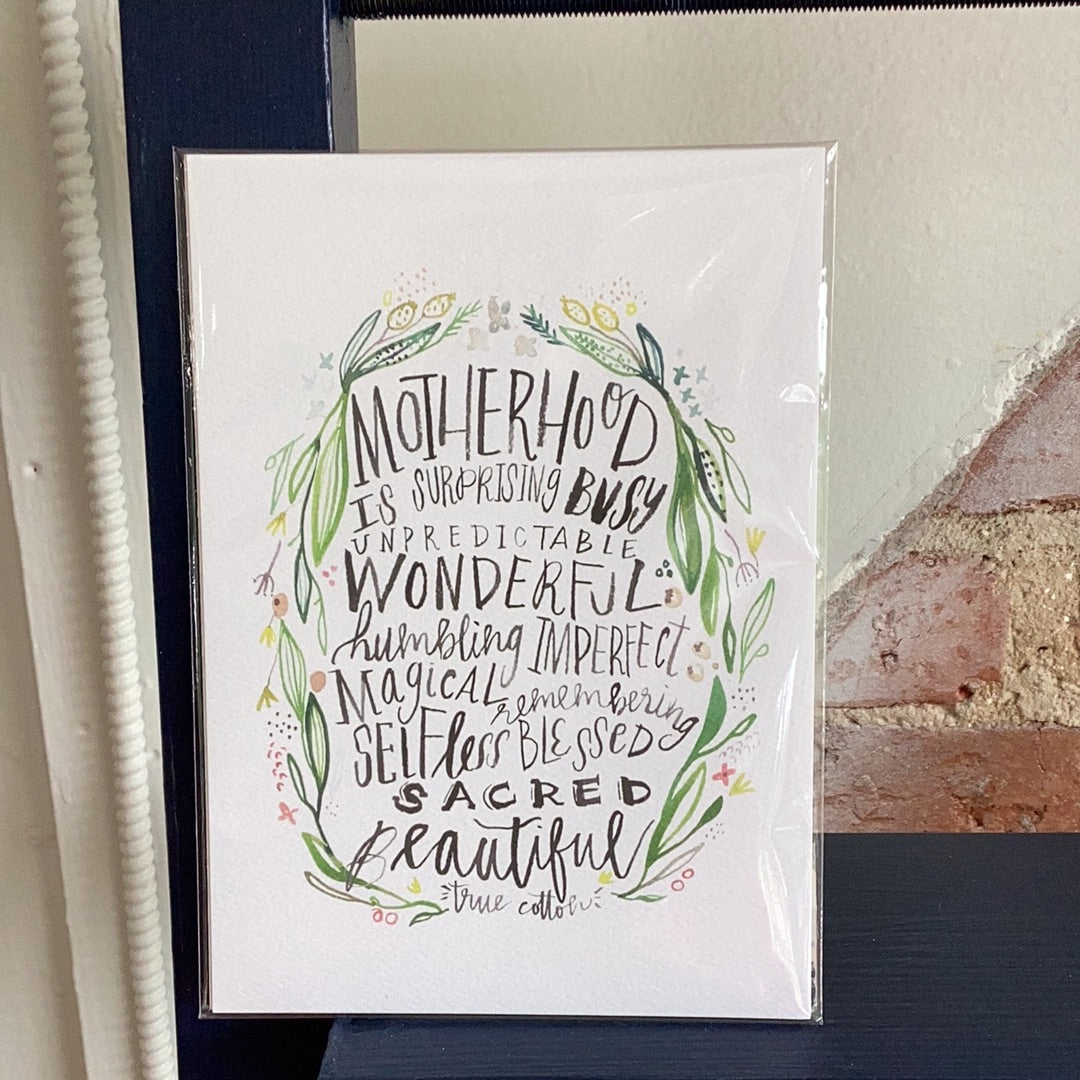 MOTHERHOOD
IS SURPRISING BUSY
UNPREDICTABLE
WONDERFUL
humbling IMPERFECT
MAGICAL remembering
SELFless BLESSED
SACRED
Beautiful
true cotton